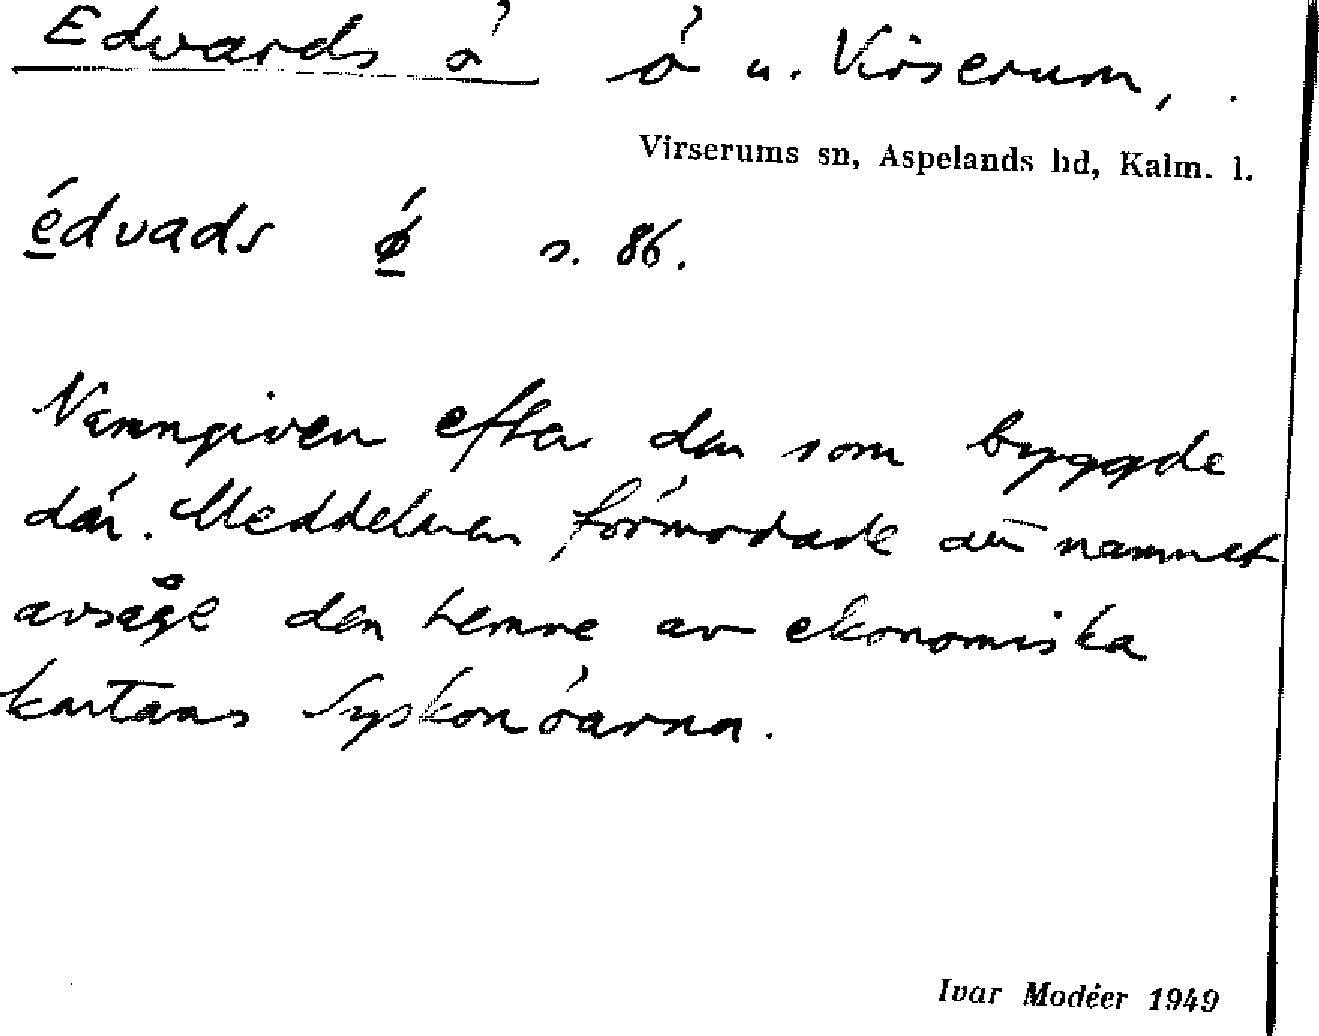 Edwards ö ö u. Virserum,
Virserums sn, Aspelands hd, Kalm. l.
édvads ǿ s. 86.
Namngiven efter den som byggde
där. Meddelaren förmodade att namnet
avsåge den hemre av ekonomiska
kartans Syskonöarna.
Ivar Modéer 1949